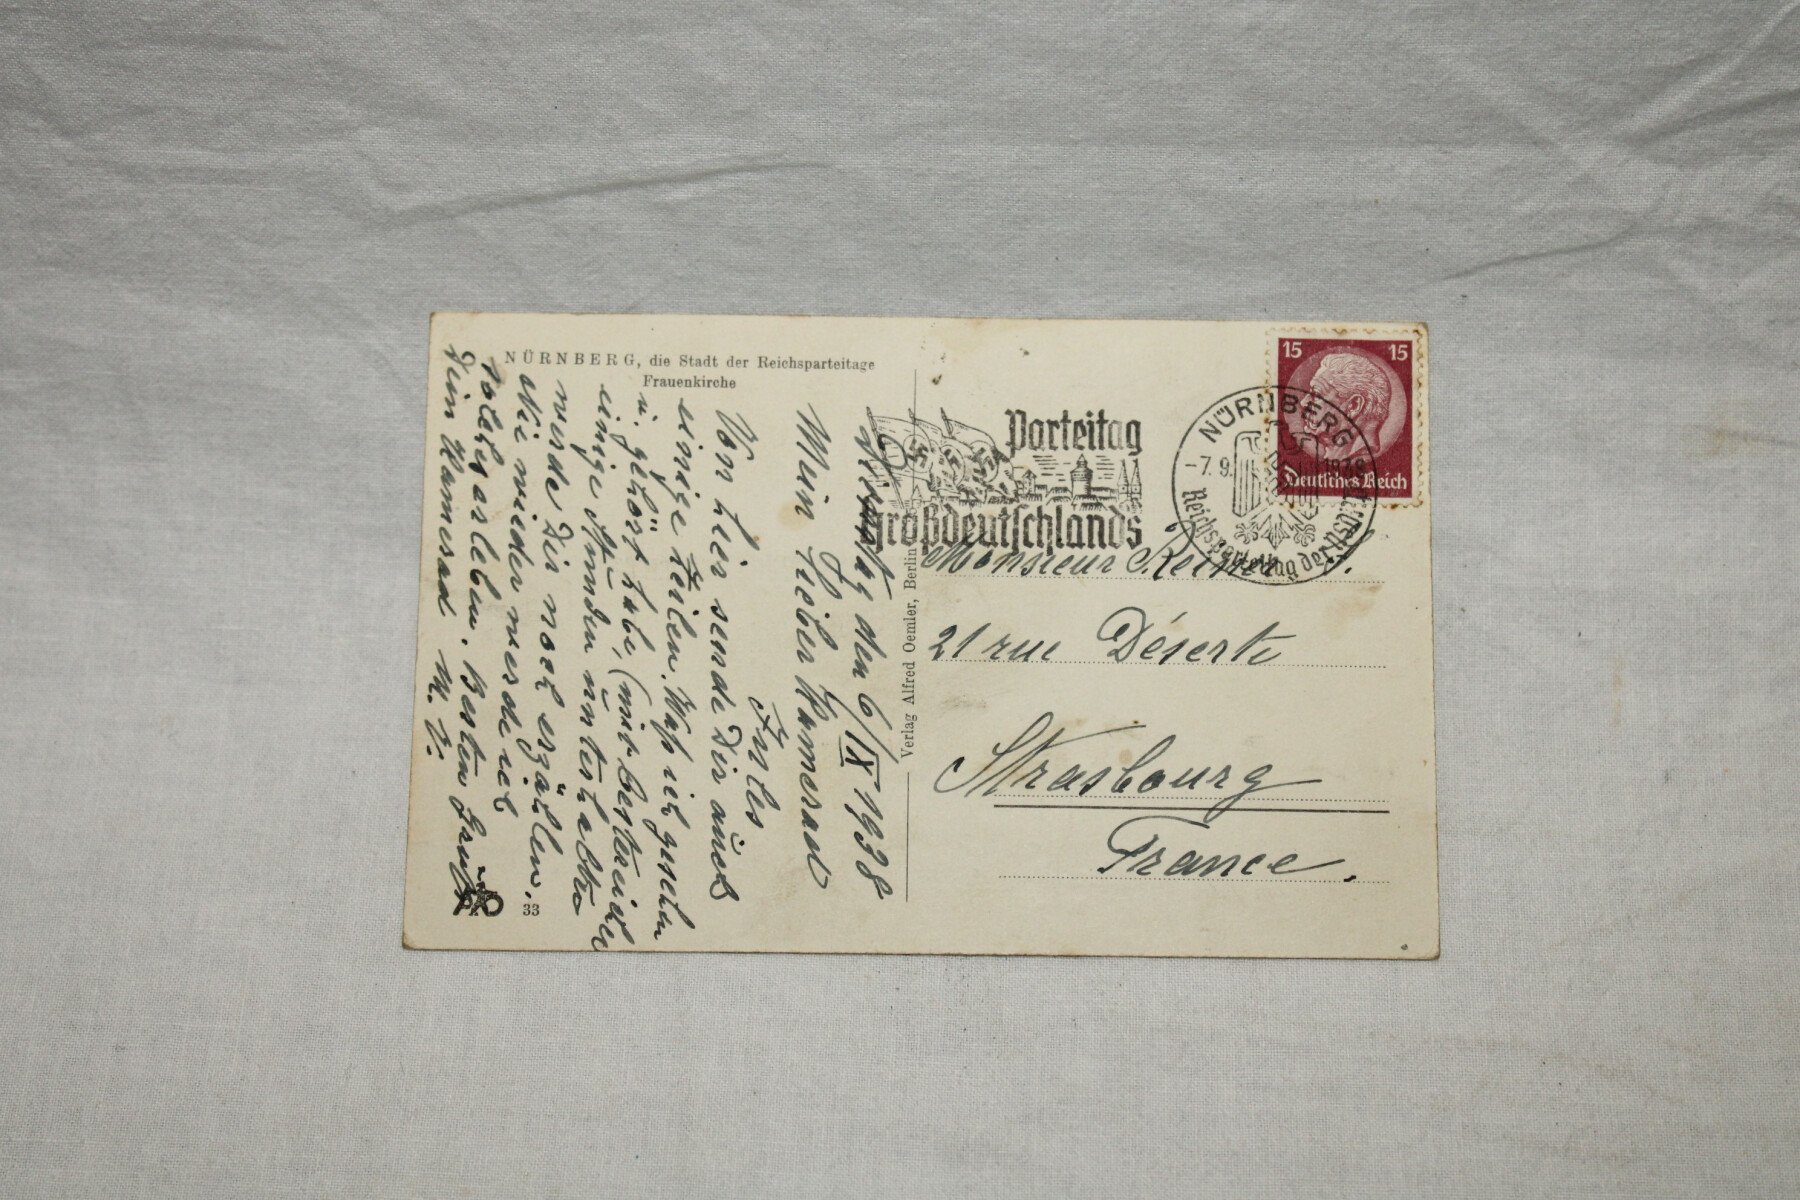 NÜRNBERG, die Stadt der Reichsparteitage
Frauenkirche
Parteitag
Großdeutschlands
NÜRNBERG
-7.9.
1938
Reichsparteitag der NSDAP
15 15
Deutsches Reich
den 6/IX 1938
Mein Lieber Kamerad
Von hier sende Dir auch
einige Zeilen. Waß ich gesehen
u. gehört habe, (mit
einige Stunden unterhalten
werde Dir noch erzählen.
Nie wieder werde ich
erleben. Besten Gruß
Dein Kamerad
33
Verlag Alfred Oemler, Berlin
Monsieur
21 rue Déserte
Strasbourg
France.